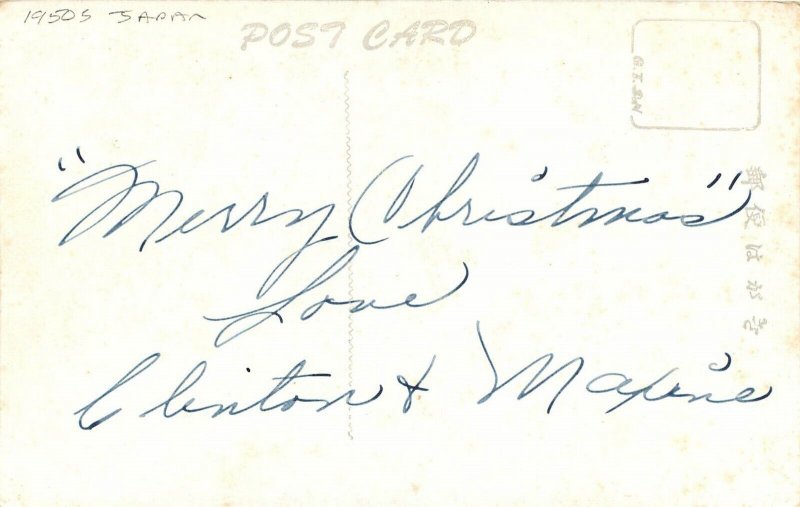 1950S JAPAN
POST CARD
"Merry Christmas"
Love
Clinton & Maxine
郵便はがき